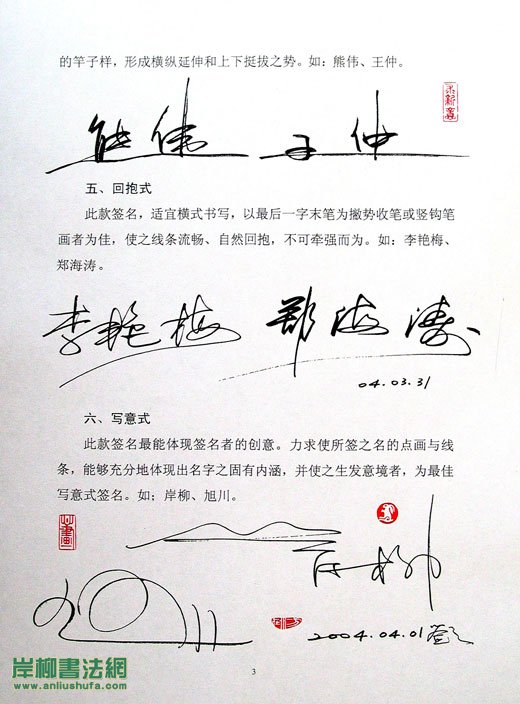 的竿子样，形成横纵延伸和上下挺拔之势。如：熊伟、王仲。
熊伟 王仲
五、回抱式
此款签名，适宜横式书写，以最后一字末笔为撇势收笔或竖钩笔
画者为佳，使之线条流畅、自然回抱，不可牵强而为。如：李艳梅、
郑海涛。
李艳梅 郑海涛
04.03.31
六、写意式
此款签名最能体现签名者的创意。力求使所签之名的点画与线
条，能够充分地体现出名字之固有内涵，并使之生发意境者，为最佳
写意式签名。如：岸柳、旭川。
岸柳
旭川
2004.04.01
岸柳書法網
www.anliushufa.com
3